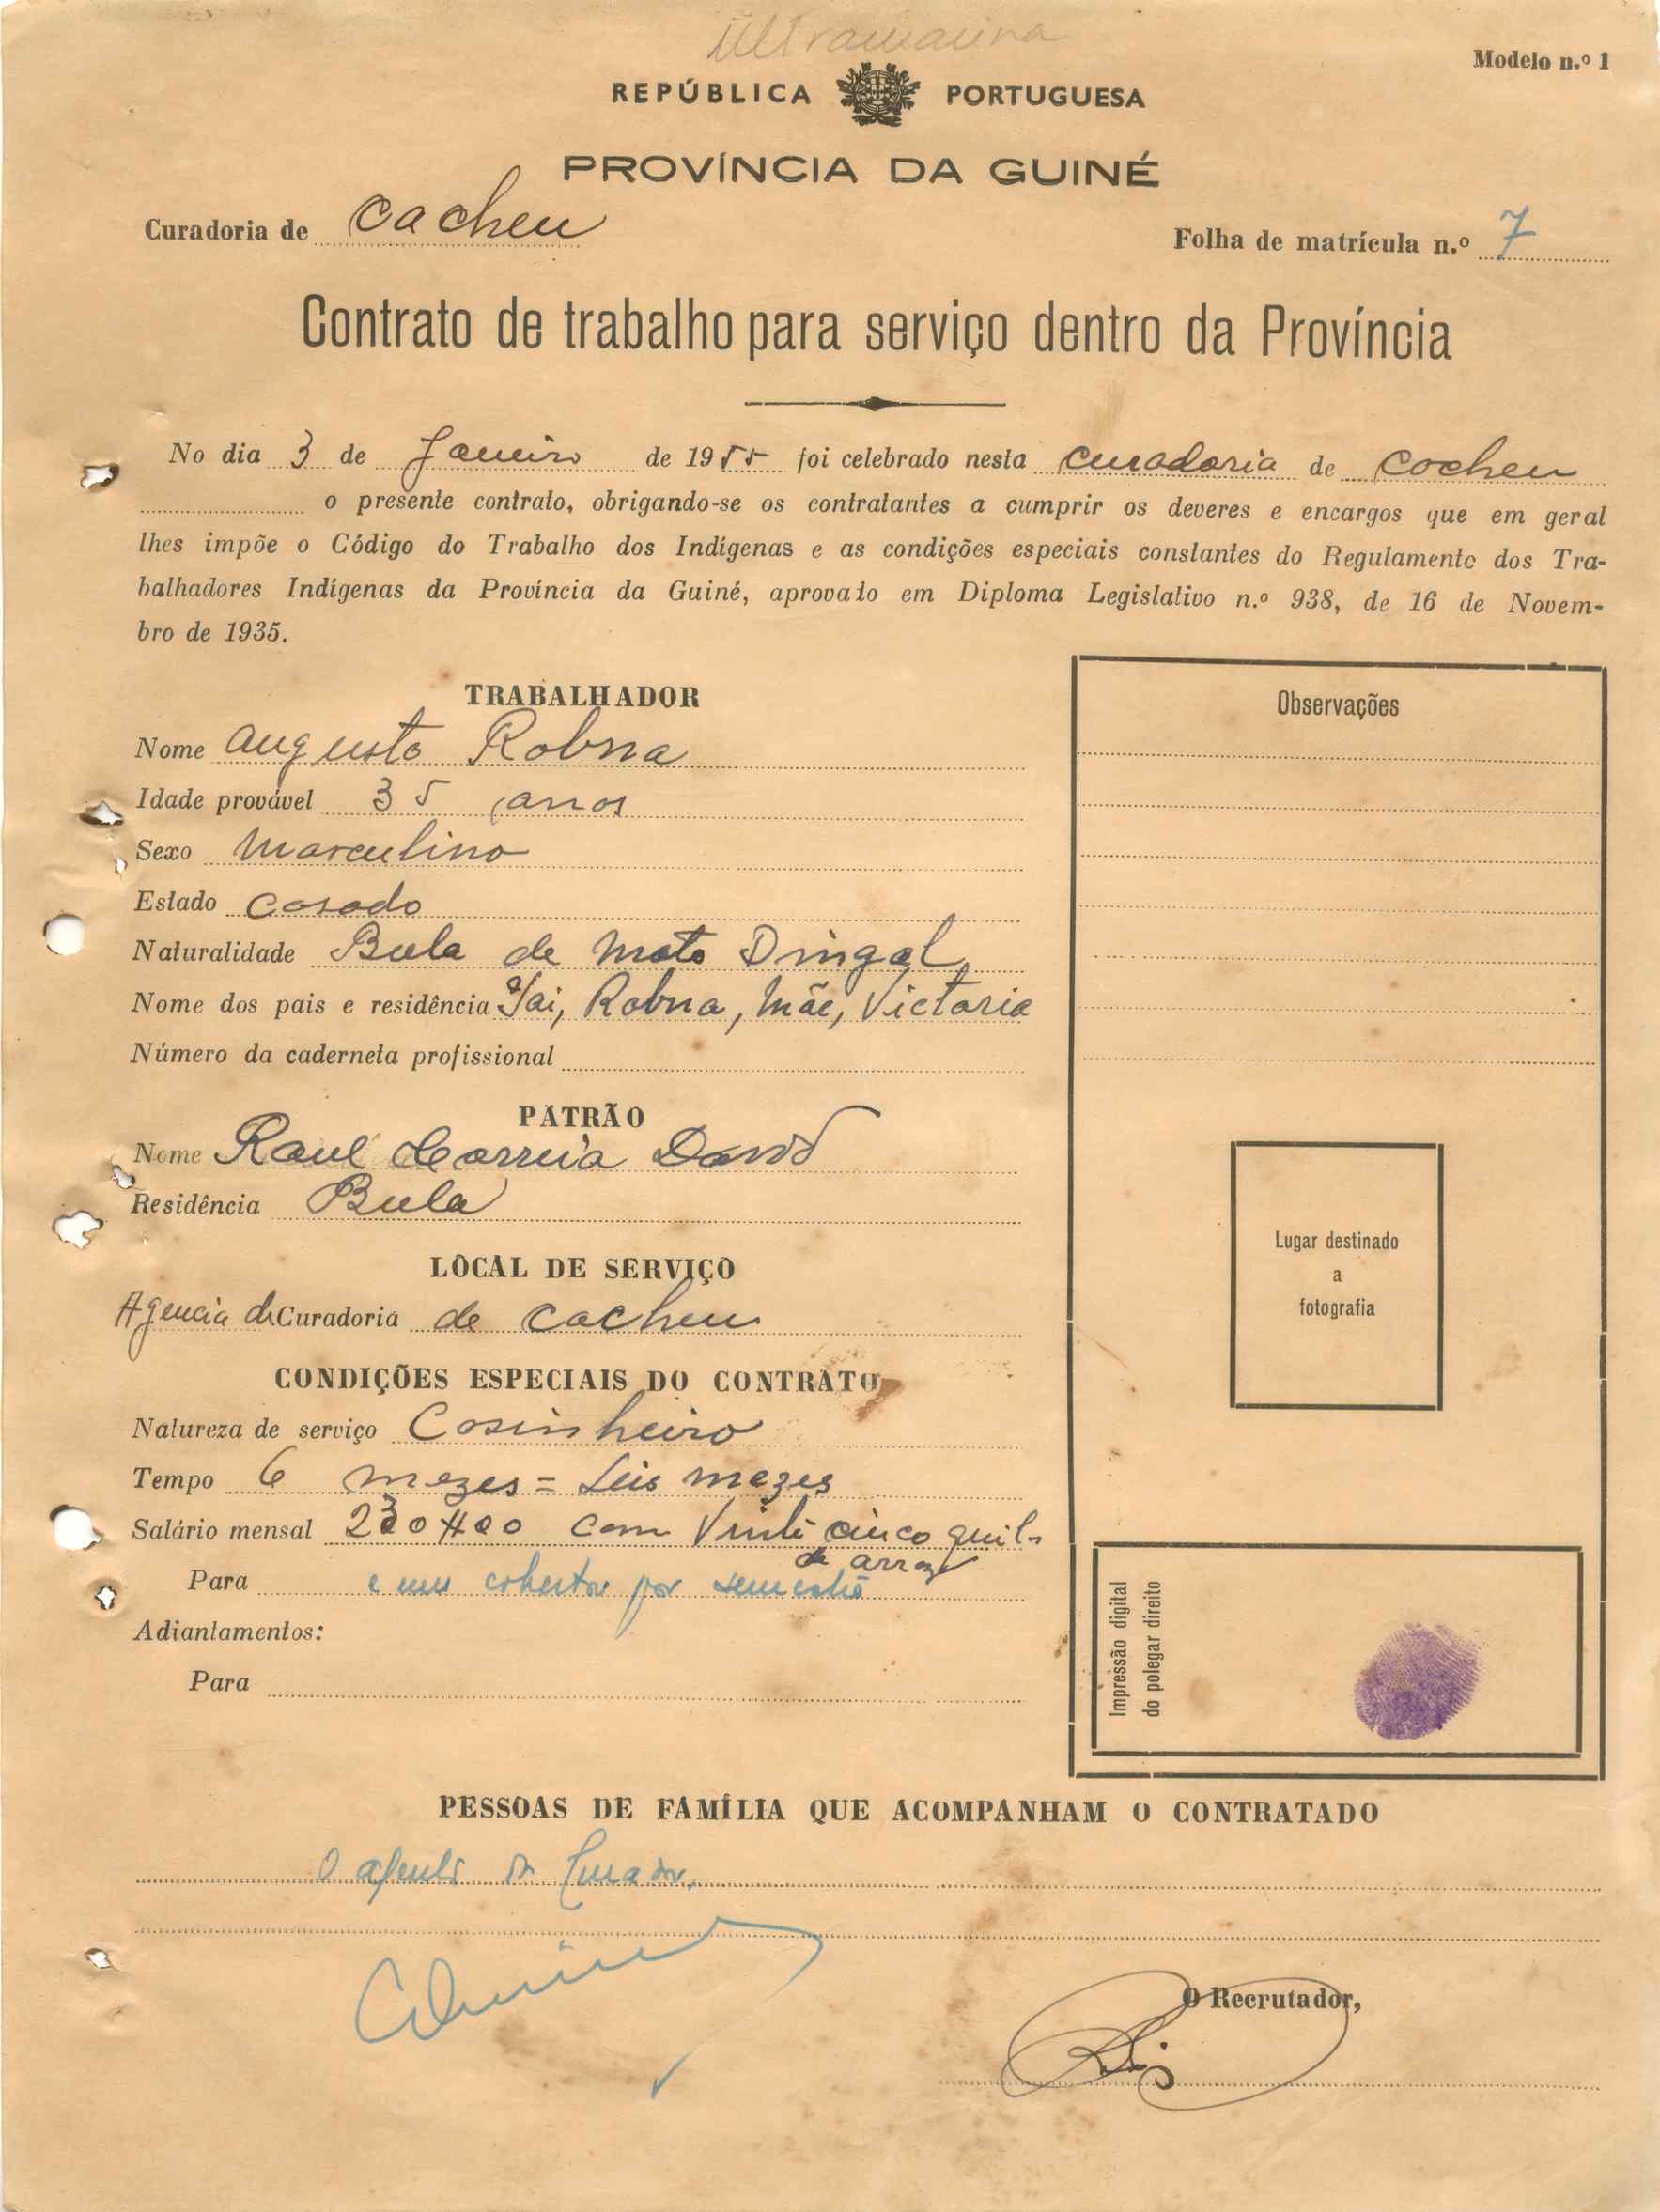 Ultramarina
Modelo n.º 1
REPÚBLICA PORTUGUESA
PROVÍNCIA DA GUINÉ
Curadoria de Cacheu
Folha de matrícula n.º 7
Contrato de trabalho para serviço dentro da Província
No dia 3 de Janeiro de 1955 foi celebrado nesta curadoria de Cacheu
o presente contrato, obrigando-se os contratantes a cumprir os deveres e encargos que em geral
lhes impõe o Código do Trabalho dos Indígenas e as condições especiais constantes do Regulamento dos Tra-
balhadores Indígenas da Província da Guiné, aprovado em Diploma Legislativo n.º 938, de 16 de Novem-
bro de 1935.
TRABALHADOR
Nome Augusto Robna
Idade provável 35 anos
Sexo Masculino
Estado Casado
Naturalidade Bula de Mato Dingal
Nome dos pais e residência Pai, Robna, Mãe, Victoria
Número da caderneta profissional
PATRÃO
Nome Raul Correia David
Residência Bula
LOCAL DE SERVIÇO
Agencia da Curadoria de Cacheu
CONDIÇÕES ESPECIAIS DO CONTRATO
Natureza de serviço Cosinheiro
Tempo 6 mezes = Seis mezes
Salário mensal 230$00 com Vinte cinco quilos
de arroz
Para e um cobertor por semestre
Adiantamentos:
Para
Observações
Lugar destinado
a
fotografia
Impressão digital
do polegar direito
PESSOAS DE FAMÍLIA QUE ACOMPANHAM O CONTRATADO
O agente do Curador,
O Recrutador,